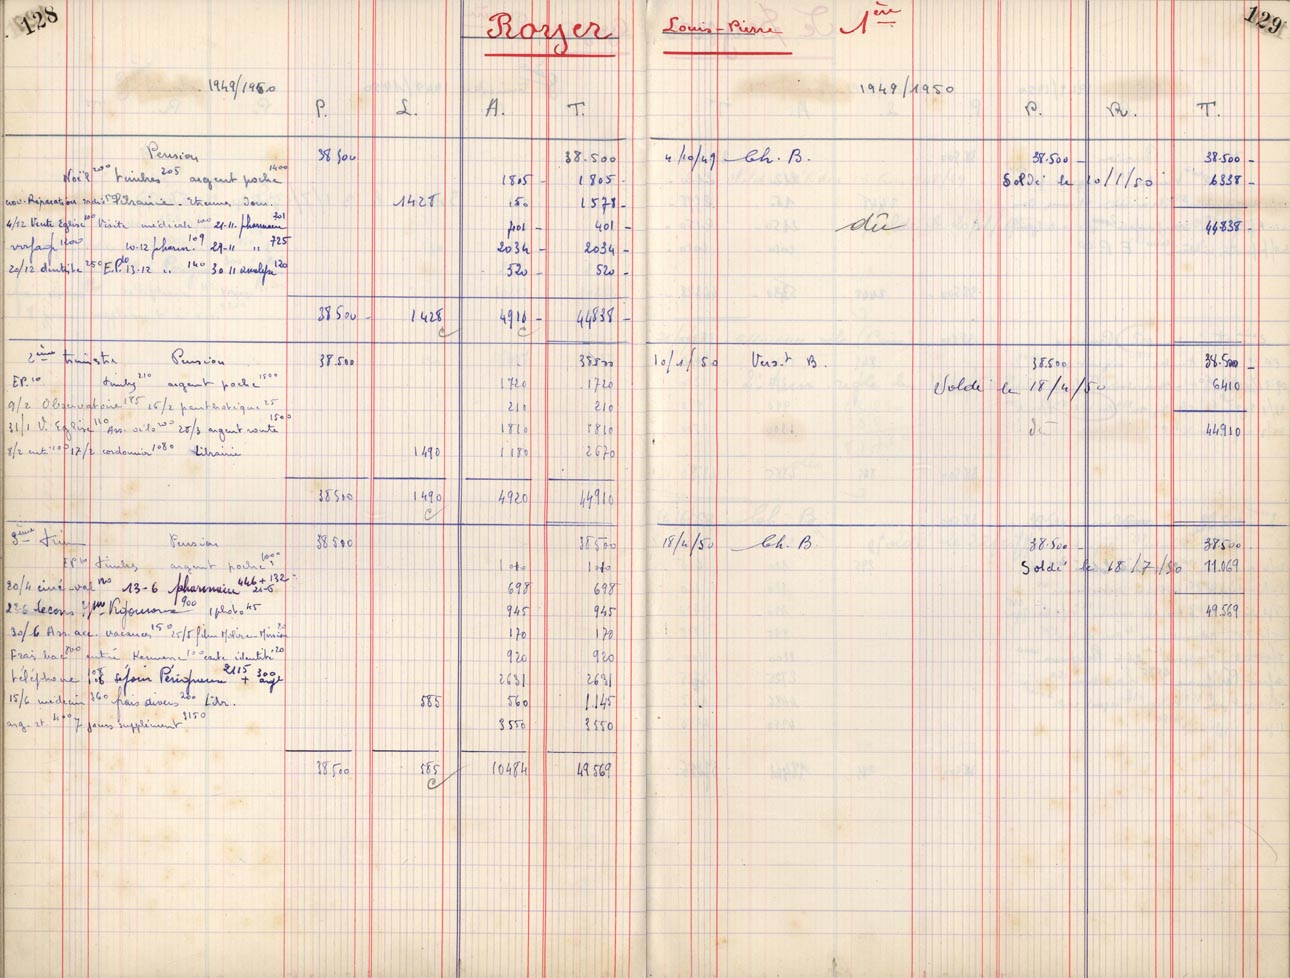 128
Royer Louis-Pierre 1ère
129
1949/1950
P. L. A. T.
Pension 38500 38.500
Noël 200 timbres 205 argent poche 1400 1805 - 1805 -
Librairie. 1428 150 1578 -
4/12 Vente Eglise 100 Visite médicale 100 21-11 pharmacie 301 401 - 401 -
10-12 pharm. 109 29-11 " 725 2034 - 2034 -
20/12 dentiste 250 E.P. 10 13-12 " 140 30 11 analyse 120 520 - 520 -
38500 - 1428 4910 - 44838 -
c c
2ème trimestre Pension 38.500 38500
EP. 10 timbres 210 argent poche 1500 1720 1720
9/2 Observatoire 185 16/2 25 210 210
31/1 V. Eglise 110 200 28/3 argent route 1500 1810 1810
8/2 100 17/2 cordonnier 1080 Librairie 1490 1180 2670
38500 1490 4920 44910
c
3ème trim Pension 38.500 38500
EP. 10 timbres argent poche 1000
20/4 ciné-val 120 13-6 pharmacie 446 + 132 21-6 698 698
Leçons 900 1 photo 45 945 945
30/6 vacances 150 25/5 film Molière Mission 20 170 170
Frais bac 800 entrée Kermesse 100 carte identité 20 920 920
téléphone 108 séjour Périgueux 2115 + 300 2631 2631
15/6 médecin 360 frais divers 200 Libr. 585 560 1.145
400 7 jours supplément 3150 3550 3550
38500 585 10484 49569
c
1949/1950
P. R. T.
4/10/49 Ch. B. 38.500 - 38.500 -
Soldé le 10/1/50 6338 -
dû 44838 -
10/1/50 Vers.t B. 38.500 38.500
Soldé le 18/4/50 6410
dû 44910
18/4/50 Ch. B. 38.500 - 38500 -
Soldé le 18/7/50 11.069
49.569